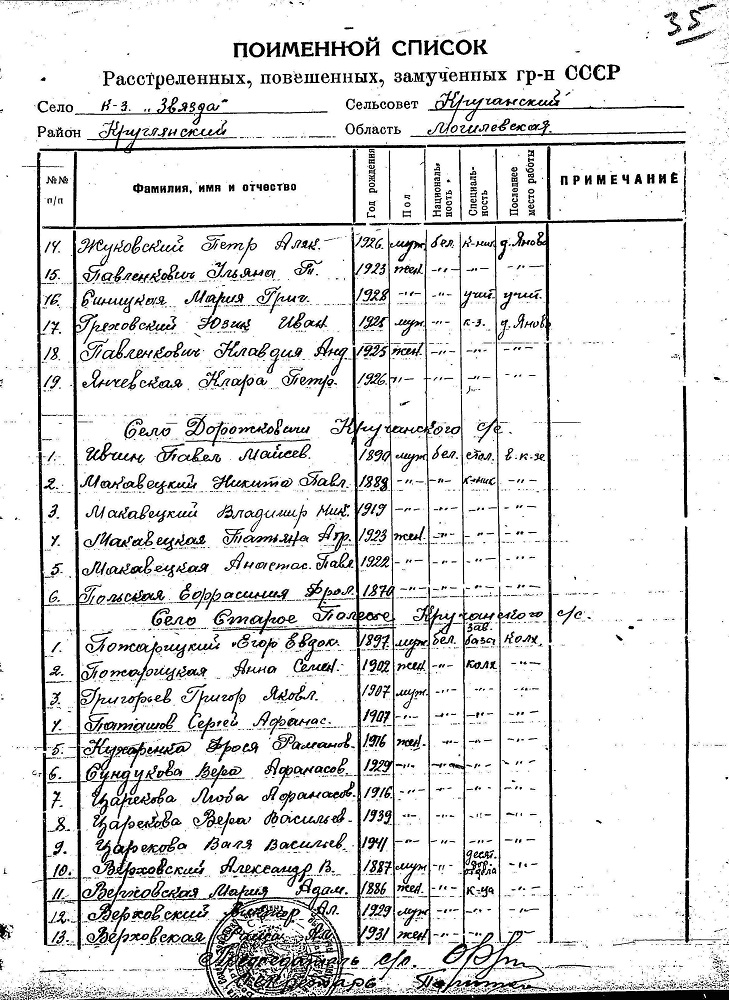 35
ПОИМЕННОЙ СПИСОК
Расстреленных, повешенных, замученных гр-н СССР
Село к-з. „Звязда" Сельсовет Кручанский
Район Круглянский Область Могилевская
№№ п/п Фамилия, имя и отчество Год рождения Пол Националь- ность Специаль- ность Последнее место работы ПРИМЕЧАНИЕ
14. Жуковский Петр Алек. 1926 муж. бел. к-ник д. Яново
15. Павленкович Ульяна П. 1923 жен. -"- -"- -"-
16. Синицкая Мария Григ. 1928 -"- -"- учит. учит.
17. Греховский Юзик Иван 1925 муж. -"- к-з. д. Яново
18. Павленкович Клавдия Анд. 1925 жен. -"- -"- -"-
19. Янчевская Клара Петр. 1926 -"- -"- -"- -"-
Село Дорожковичи Кручанского с/с.
1. Ивчин Павел Майсев. 1890 муж. бел. стол. в к-зе
2. Макавецкий Никита Павл. 1888 -"- -"- к-ник -"-
3. Макавецкий Владимир Ник. 1919 -"- -"- -"- -"-
4. Макавецкая Татьяна 1923 жен. -"- -"- -"-
5. Макавецкая Анастас. Павл 1922 -"- -"- -"- -"-
6. Польская Ефрасиния Фрол. 1870 -"- -"- -"- -"-
Село Старое Полесье Кручанского с/с.
1. Пожарицкий Егор Евдок. 1897 муж. бел. зав. базы колх.
2. Пожарицкая Анна Семен. 1902 жен. -"- колх -"-
3. Григорьев Григор Яковл. 1907 муж. -"- -"- -"-
4. Паташов Сергей Афанас. 1907 -"- -"- -"- -"-
5. Кухаренка Фрося Раманов. 1916 жен. -"- -"- -"-
6. Сундукова Вера Афанасов. 1929 -"- -"- -"- -"-
7. Царекова Люба Афанасов. 1916 -"- -"- -"- -"-
8 Царекова Вера Васильев. 1939 -"- -"- -"- -"-
9. Царекова Валя Васильев. 1941 -"- -"- -"- -"-
10. Верховский Александр В. 1887 муж -"- отдела -"-
11. Верховская Мария Адам. 1886 жен. -"- к-ца -"-
12. Верховский Ал. 1929 муж -"- -"- -"-
13. Верховская 1931 жен -"- -"- -"-
Председатель с/с.
Секретарь